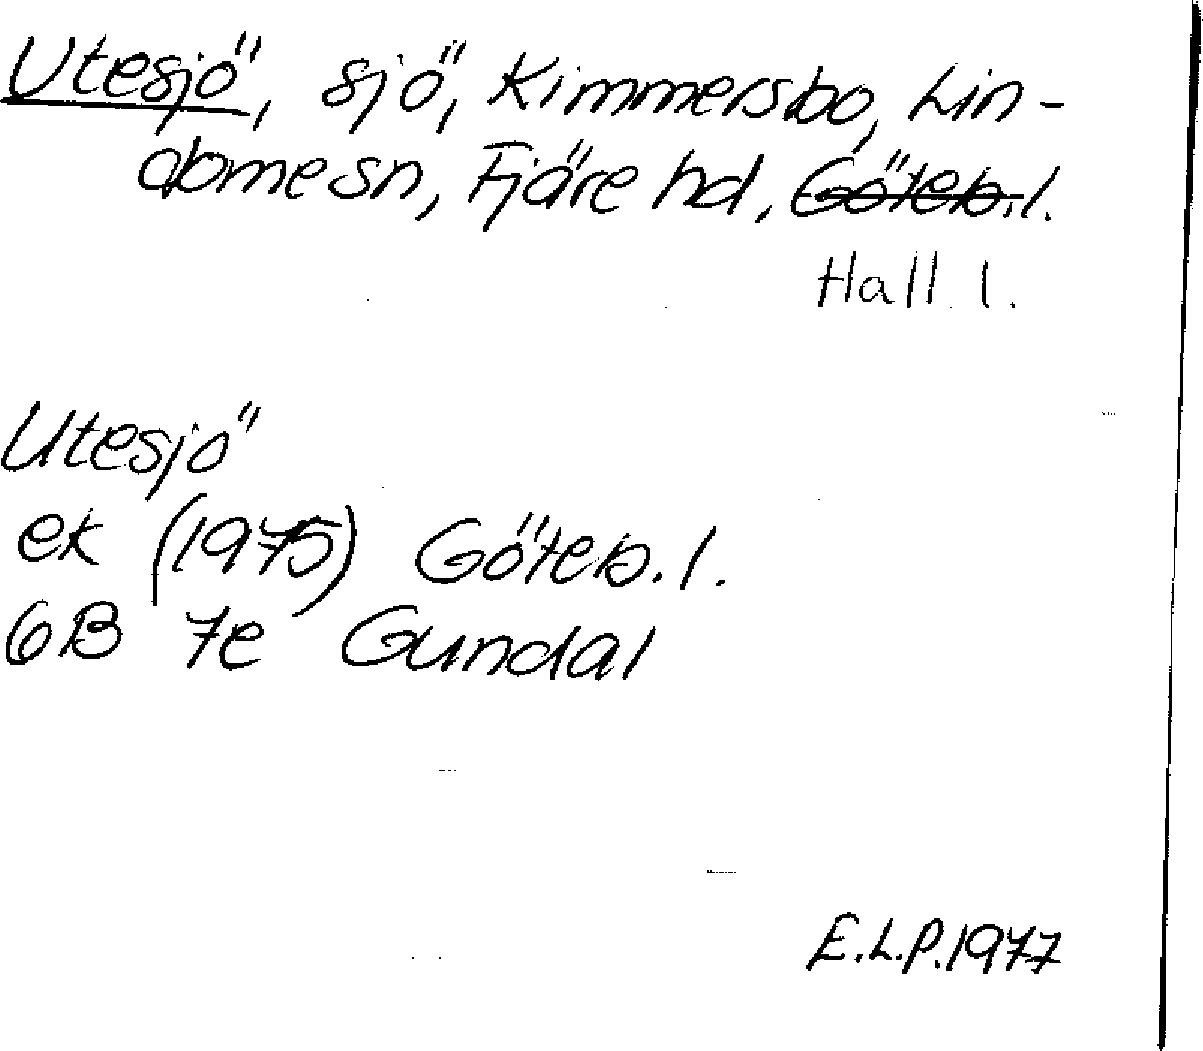 Utesjö, sjö, Kimmersbo, Lin-
dome sn, Fjäre hd, Göteb. l.
Hall l.
Utesjö
ek (1975) Göteb. l.
6B 7e Gundal
E.L.P. 1977